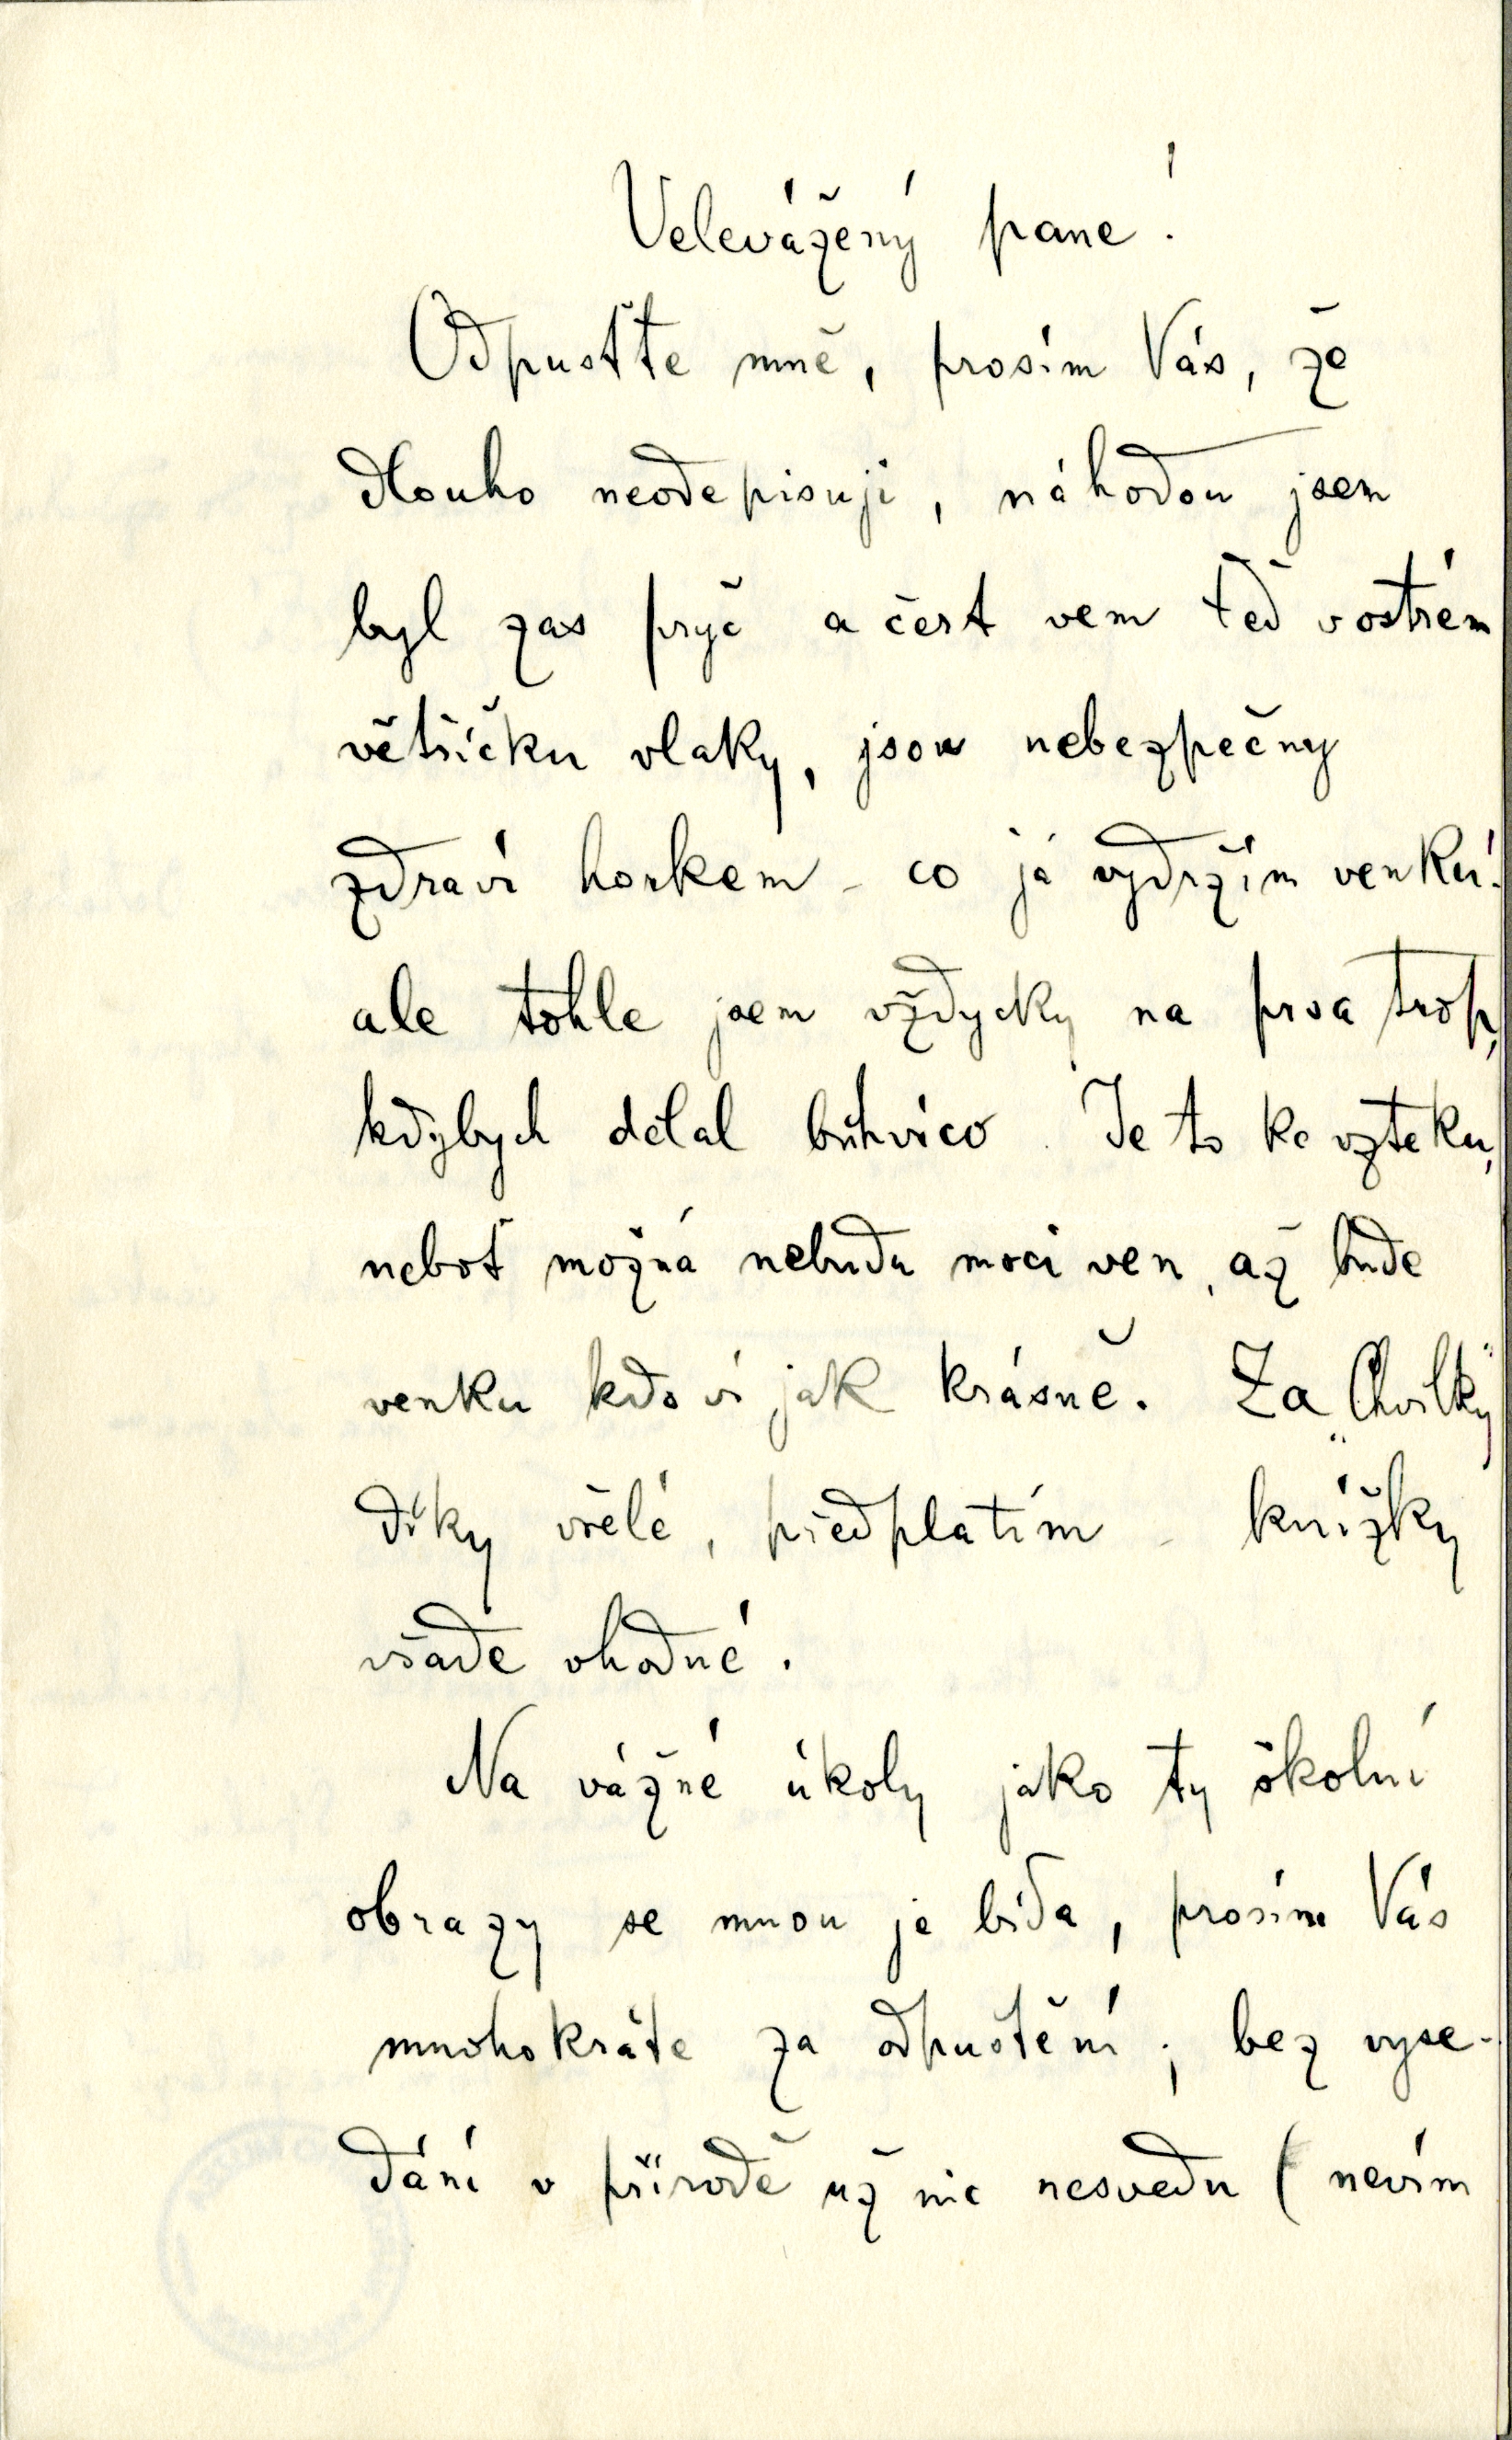 Velevážený pane!
Odpusťte mně, prosím Vás, že
dlouho neodepisuji, náhodou jsem
byl zas pryč a čert vem teď v ostrém
větříčku vlaky, jsou nebezpečny
zdraví horkem – co já vydržím venku!
ale tohle jsem vždycky na prsa trop,
kdybych dělal bůhvíco. Je to ke vzteku,
neboť možná nebudu moci ven, až bude
venku kdo ví jak krásně. Za „Chvilky“
díky vřelé, předplatím – knížky
všade vhodné.
Na vážné úkoly jako ty školní
obrazy se mnou je bída, prosím Vás
mnohokráte za odpuštění; bez vyse-
dání v přírodě už nic nesvedu (nevím